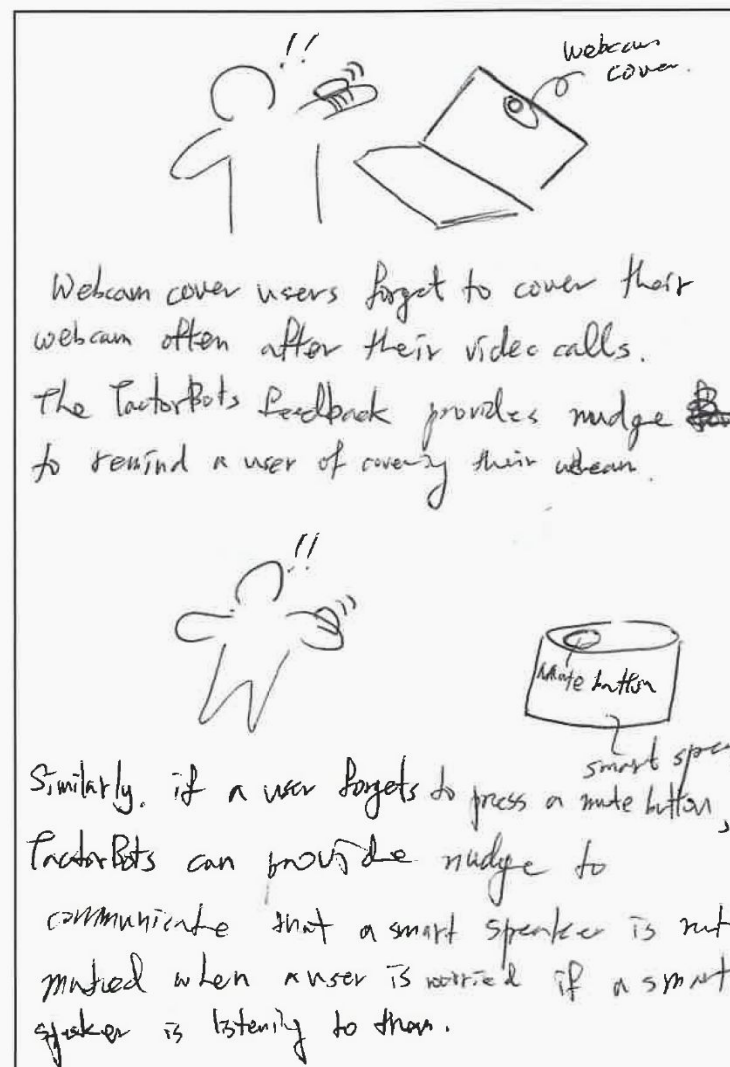 !!
webcam
cover.
Webcam cover users forget to cover their
webcam often after their video calls.
The TactorBots feedback provides nudge
to remind a user of covering their webcam.
!!
Mute button
smart spea
Similarly, if a user forgets to press a mute button,
TactorBots can provide nudge to
communicate that a smart speaker is not
muted when a user is worried if a smart
speaker is listening to them.